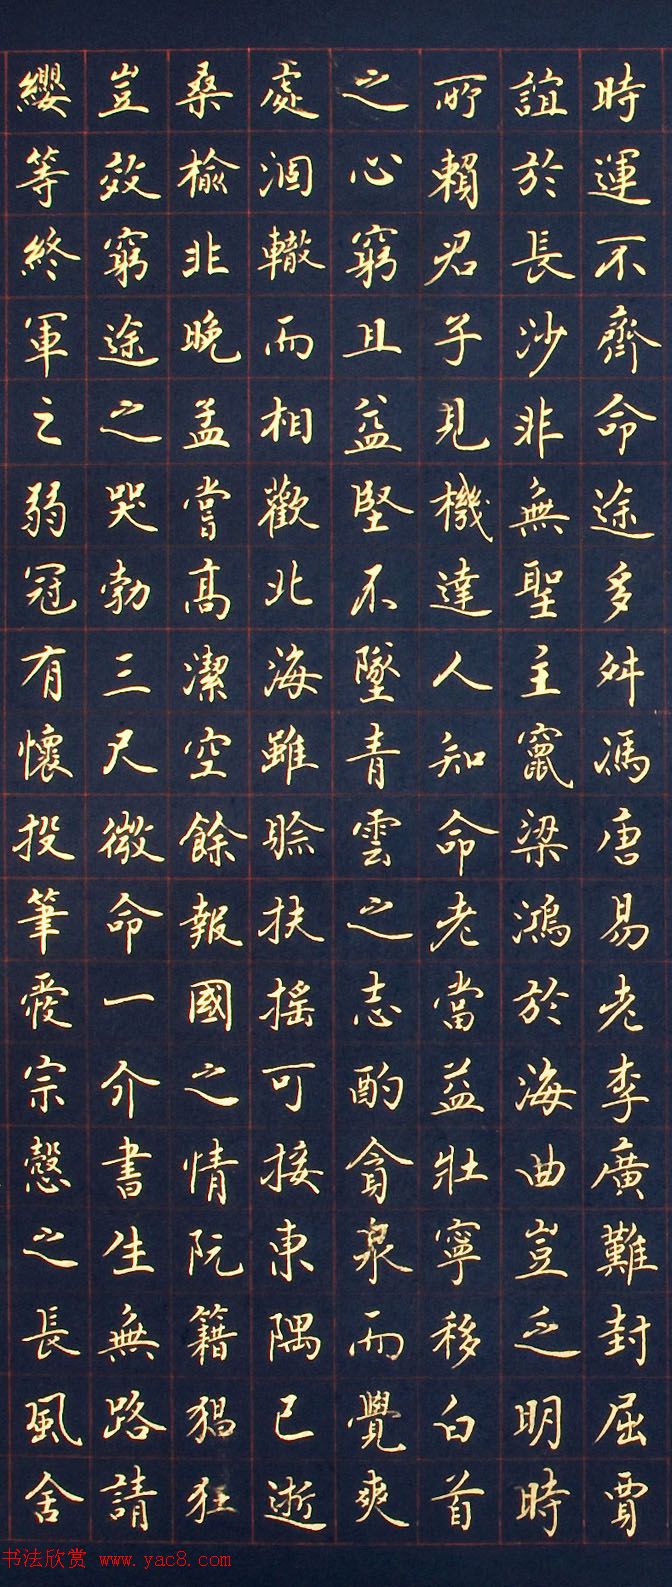 時運不齊命途多舛馮唐易老李廣難封屈賈
誼於長沙非無聖主竄梁鴻於海曲豈乏明時
所賴君子見機達人知命老當益壯寧移白首
之心窮且益堅不墜青雲之志酌貪泉而覺爽
處涸轍而相歡北海雖賒扶搖可接東隅已逝
桑榆非晚孟嘗高潔空餘報國之情阮籍猖狂
豈效窮途之哭勃三尺微命一介書生無路請
纓等終軍之弱冠有懷投筆愛宗愨之長風舍
书法欣赏 www.yac8.com